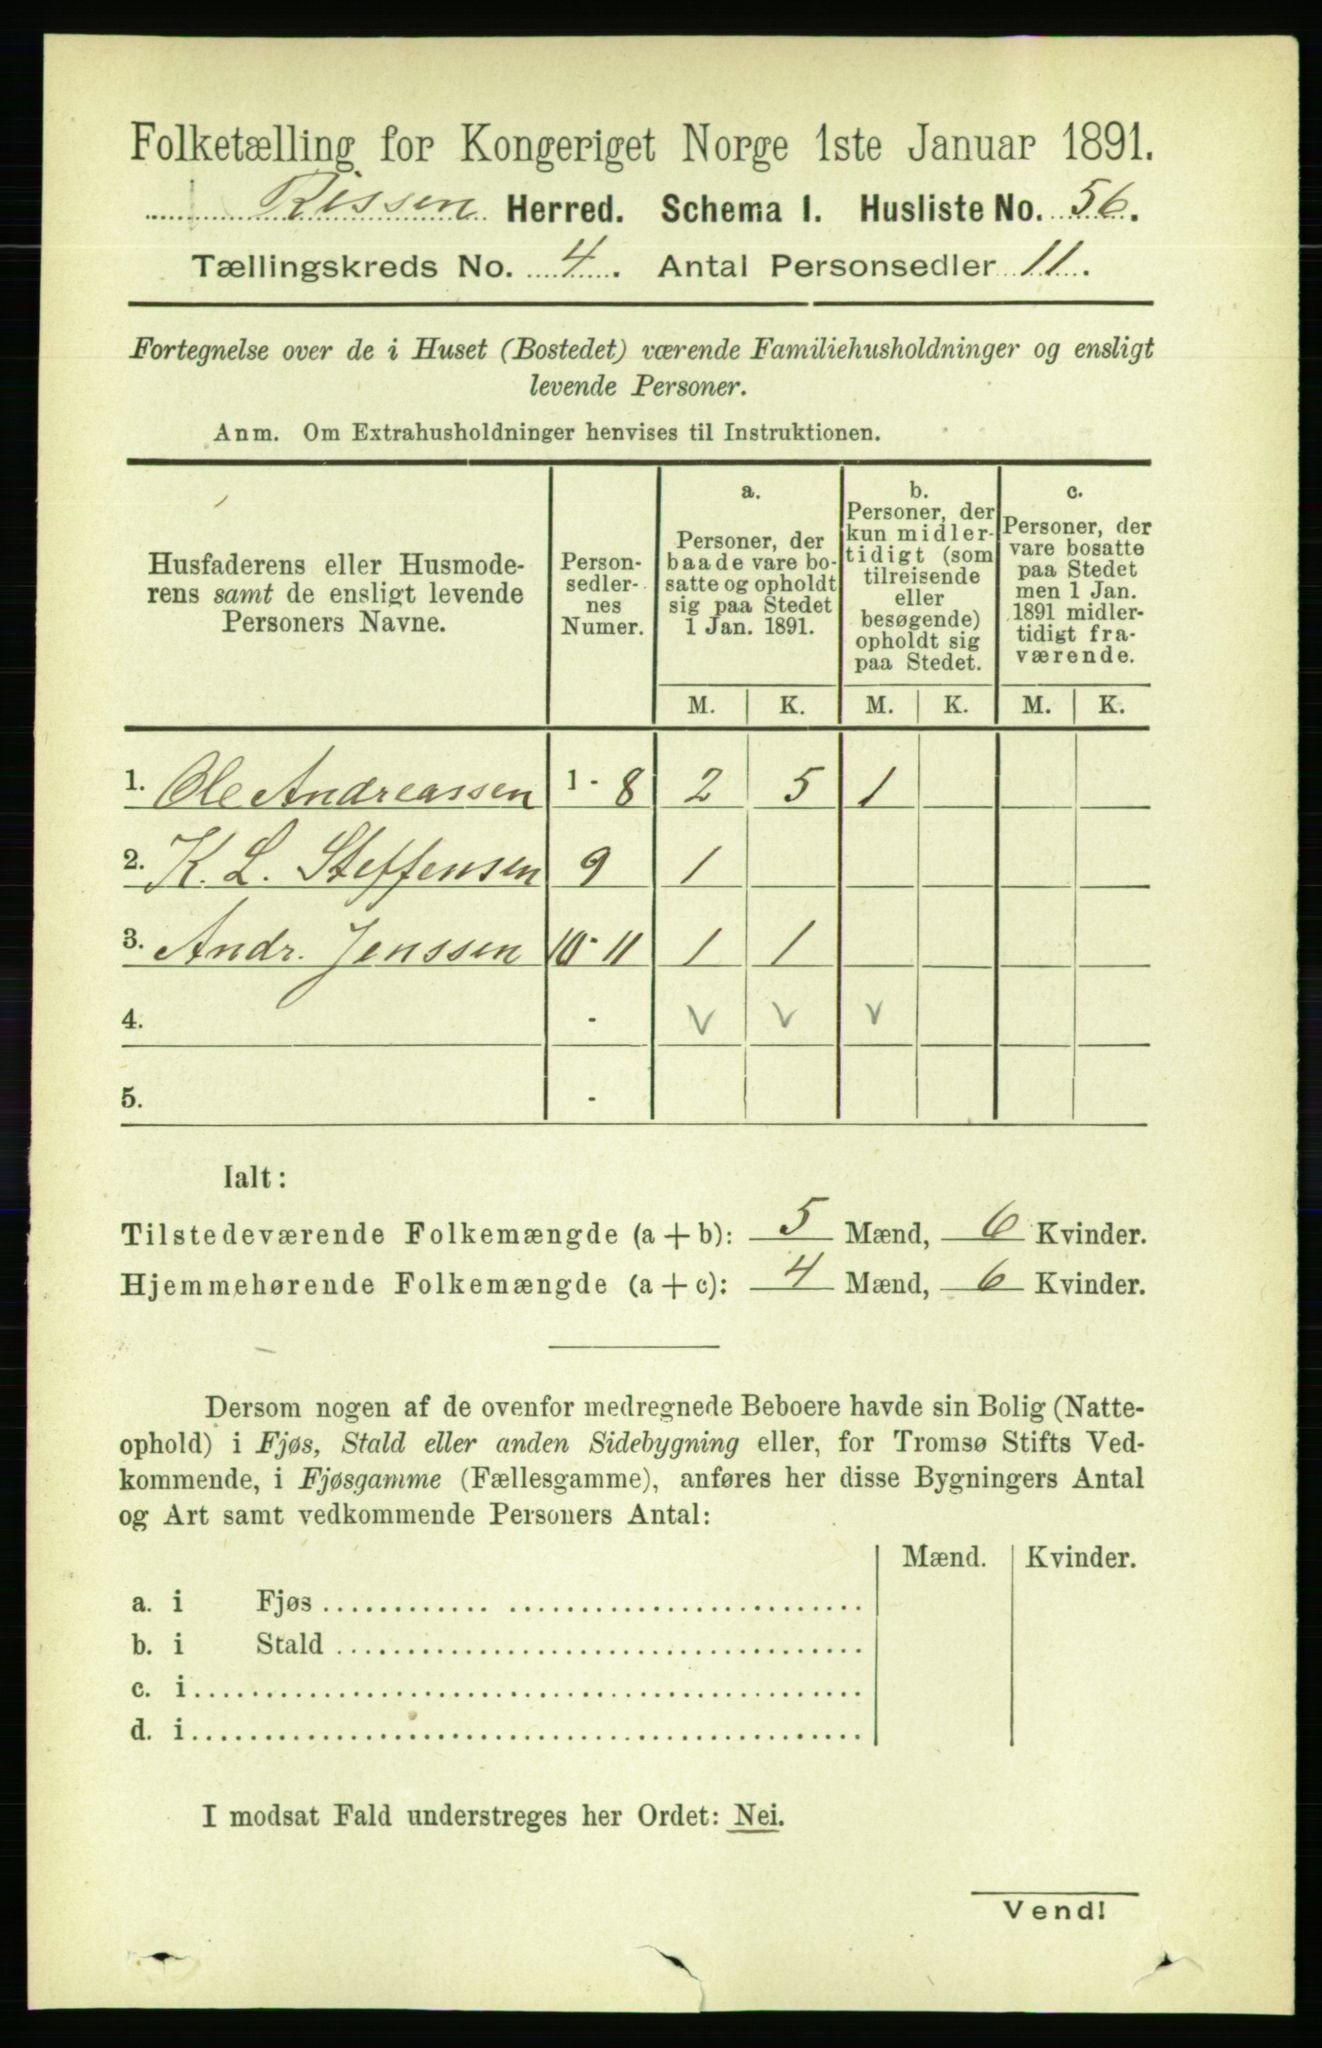 Folketælling for Kongeriget Norge 1ste Januar 1891.
Rissen Herred. Schema I. Husliste No. 56.
Tællingskreds No. 4. Antal Personsedler 11.
Fortegnelse over de i Huset (Bostedet) værende Familiehusholdninger og ensligt
levende Personer.
Anm. Om Extrahusholdninger henvises til Instruktionen.
Husfaderens eller Husmode-
rens samt de ensligt levende
Personers Navne.
Person-
sedler-
nes
Numer.
a.
Personer, der
baade vare bo-
satte og opholdt
sig paa Stedet
1 Jan. 1891.
b.
Personer, der
kun midler-
tidigt (som
tilreisende
eller
besøgende)
opholdt sig
paa Stedet.
c.
Personer, der
vare bosatte
paa Stedet
men 1 Jan.
1891 midler-
tidigt fra-
værende.
M. K. M. K. M. K.
1. Ole Andreassen 1 - 8 2 5 1
2. K. L. Steffensen 9 1
3. Andr. Jenssen 10 - 11 1 1
4. - v v v
5. -
Ialt:
Tilstedeværende Folkemængde (a + b): 5 Mænd, 6 Kvinder.
Hjemmehørende Folkemængde (a + c): 4 Mænd, 6 Kvinder.
Dersom nogen af de ovenfor medregnede Beboere havde sin Bolig (Natte-
ophold) i Fjøs, Stald eller anden Sidebygning eller, for Tromsø Stifts Ved-
kommende, i Fjøsgamme (Fællesgamme), anføres her disse Bygningers Antal
og Art samt vedkommende Personers Antal:
Mænd. Kvinder.
a. i Fjøs
b. i Stald
c. i
d. i
I modsat Fald understreges her Ordet: Nei.
Vend!